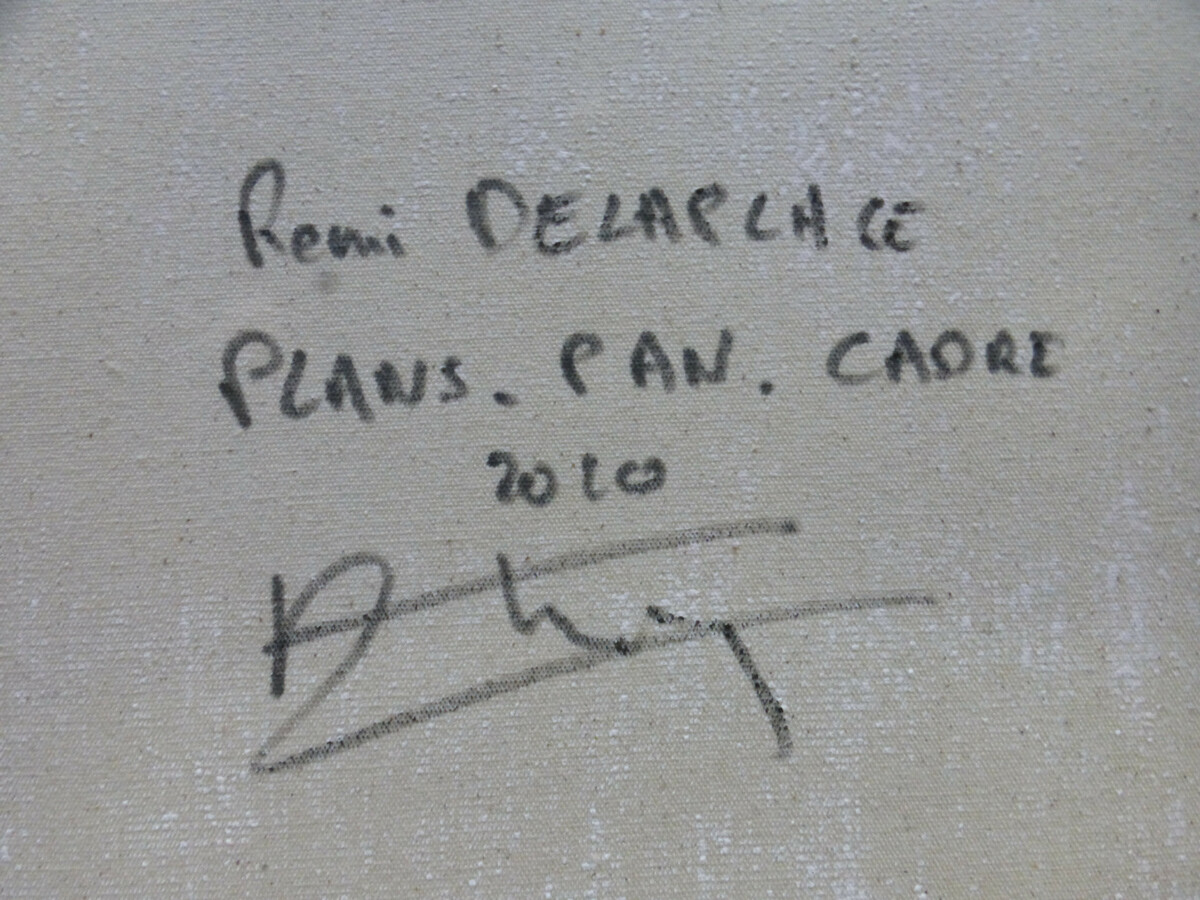 Remi DELAPLACE
PLANS. PAN. CADRE
2010